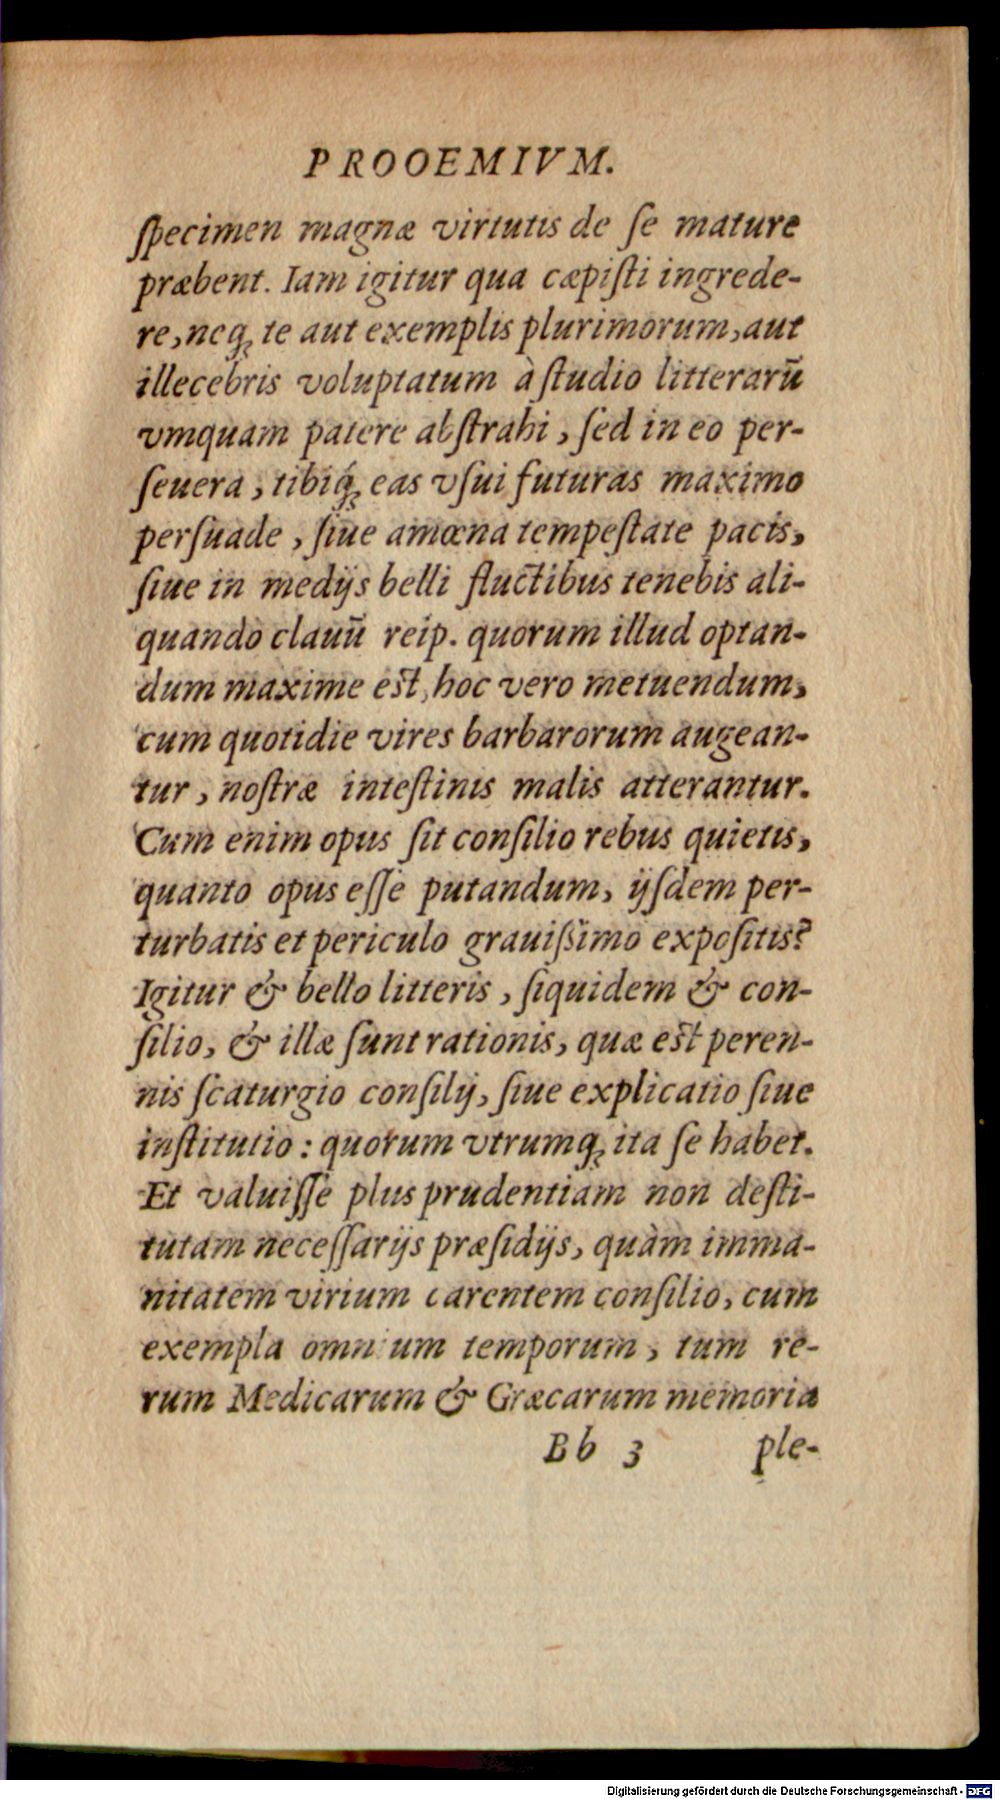 PROOEMIVM.
ſpecimen magnæ virtutis de ſe mature
præbent. Iam igitur qua cæpiſti ingrede-
re, neq́ꝫ te aut exemplis plurimorum, aut
illecebris voluptatum à ſtudio litterarū
vmquam patere abſtrahi, ſed in eo per-
ſeuera, tibiq́ꝫ eas vſui futuras maximo
perſuade, ſiue amœna tempeſtate pacis,
ſiue in medijs belli fluctibus tenebis ali-
quando clauū reip. quorum illud optan-
dum maxime est, hoc vero metuendum,
cum quotidie vires barbarorum augean-
tur, noſtræ inteſtinis malis atterantur.
Cum enim opus ſit conſilio rebus quietis,
quanto opus eſſe putandum, ijſdem per-
turbatis et periculo grauiſsimo expoſitis?
Igitur & bello litteris, ſiquidem & con-
ſilio, & illæ ſunt rationis, quæ est peren-
nis ſcaturgio conſilij, ſiue explicatio ſiue
inſtitutio: quorum vtrumqꝫ ita ſe habet.
Et valuiſſe plus prudentiam non deſti-
tutam neceſſarijs præſidijs, quàm imma-
nitatem virium carentem conſilio, cum
exempla omnium temporum, tum re-
rum Medicarum & Græcarum memoria
Bb 3 ple-
Digitalisierung gefördert durch die Deutsche Forschungsgemeinschaft - DFG